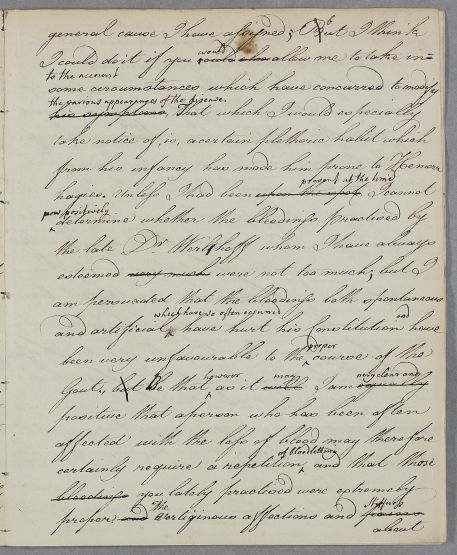 general cause I have assigned; But I think
I could do it if you would allow me to take in
to the account
some circumstances which have concurred to modify
the various appearances of the disease.
his symptoms, That which I would especially
take notice of, is, a certain plethoric habit which
from his infancy has made him prone to Hemorr
hagies. Unless I had been present at the time I cannot
now positively
determine whether the bleedings practised by
the late Dr. Werlhoff whom I have always
esteemed very much were not too much; but I
am persuaded that the bleedings both spontaneous
which have so often occurred
and artificial have hurt his Constitution and have
been very unfavourable to the proper course of the
Gout, but Be that however as it may I am very clear and equally
positive that a person who has been often
affected with the loss of blood may therefore
certainly require a repetition of bloodletting and that those
bloodings you lately practised were extremely
proper. and The vertiginous affections and
about